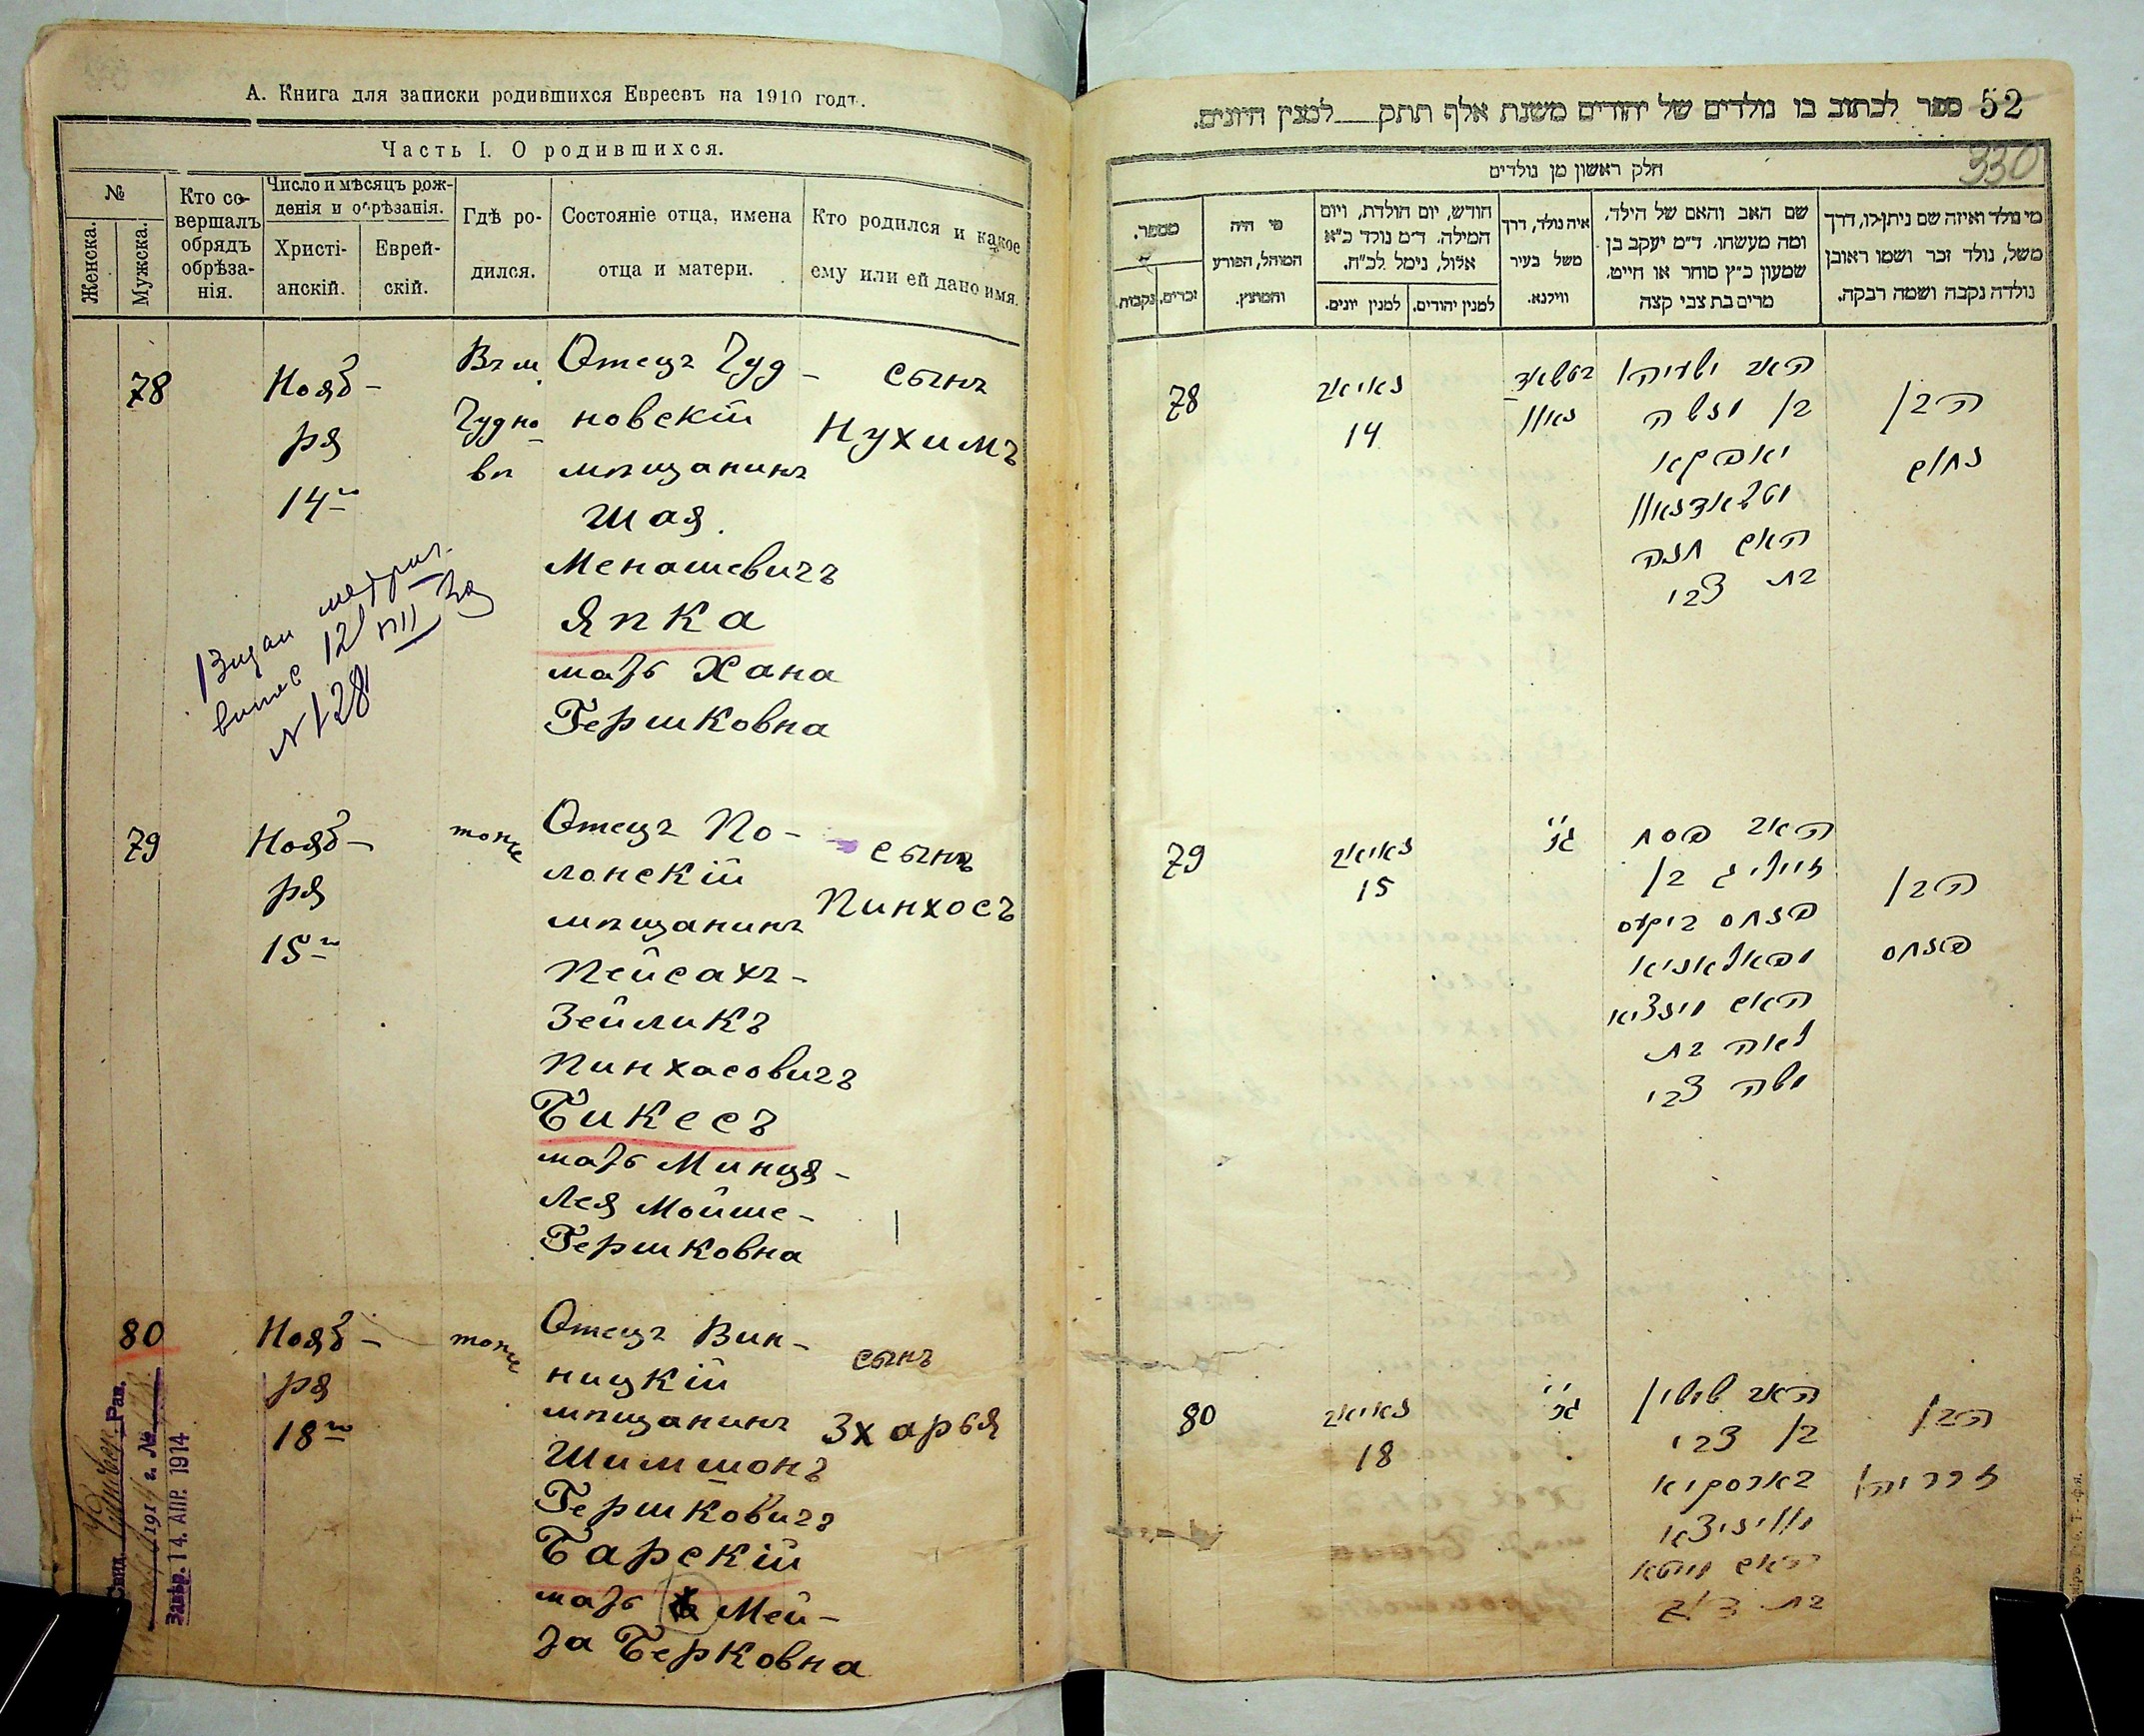 А. Книга для записки родившихся Евреевъ на 1910 годъ.
Часть I. О родившихся.
№
Женска.
Мужска.
Кто со-
вершалъ
обрядъ
обрѣза-
нія.
Число и мѣсяцъ рож-
денія и обрѣзанія.
Христі-
анскій.
Еврей-
скій.
Гдѣ ро-
дился.
Состояніе отца, имена
отца и матери.
Кто родился и какое
ему или ей дано имя.
78
Нояб-
ря
14го
Въ м.
Чудно-
вѣ
Отецъ Чуд-
новскій
мѣщанинъ
Шая
Менашевичъ
Япка
мать Хана
Гершковна
сынъ
Нухимъ
метрич.
12/VIII
№ 128
79
Нояб-
ря
15го
тоже
Отецъ По-
лонскій
мѣщанинъ
Пейсахъ-
Зейликъ
Пинхасовичъ
Бикесъ
мать Минця-
Лея Мойше-
Гершковна
сынъ
Пинхосъ
80
Нояб-
ря
18го
тоже
Отецъ Вин-
ницкій
мѣщанинъ
Шимшонъ
Гершковичъ
Барскій
мать Мей-
та Берковна
сынъ
Зхарья
Рав.
1914 г. №
Завѣр. 14. АПР. 1914
52 ספר לכתוב בו נולדים של יהודים משנת אלף תתק למנין היונים.
330
חלק ראשון מן נולדים
מספר.
נקבות.
זכרים.
מי היה
המוהל, הפורע
והמוצץ.
חודש, יום הולדת, ויום
המילה. ד״מ נולד כ״א
אלול, נימל לכ״ח.
למנין יונים.
למנין יהודים.
איה נולד, דרך
משל בעיר
ווילנא.
שם האב והאם של הילד,
ומה מעשהו. ד״מ יעקב בן
שמעון כ״ץ סוחר או חייט.
מרים בת צבי קצה
מי נולד ואיזה שם ניתן לו, דרך
משל, נולד זכר ושמו ראובן
נולדה נקבה ושמה רבקה.
78
נאיאב
14
טשוד
נאוו
האב ישעיהו
בן מנשה
יאפקא
מטשאדנאוו
האם חנה
בת צבי
הבן
נחום
79
נאיאב
15
גם
האב פסח
זייליג בן
פנחס ביקעס
מפאלאניא
האם מינציא
לאה בת
משה צבי
הבן
פנחס
80
נאיאב
18
גם
האב שמשון
בן צבי
בארסקיא
מוויניצא
האם מייטא
בת דוב
הבן
זכריהו